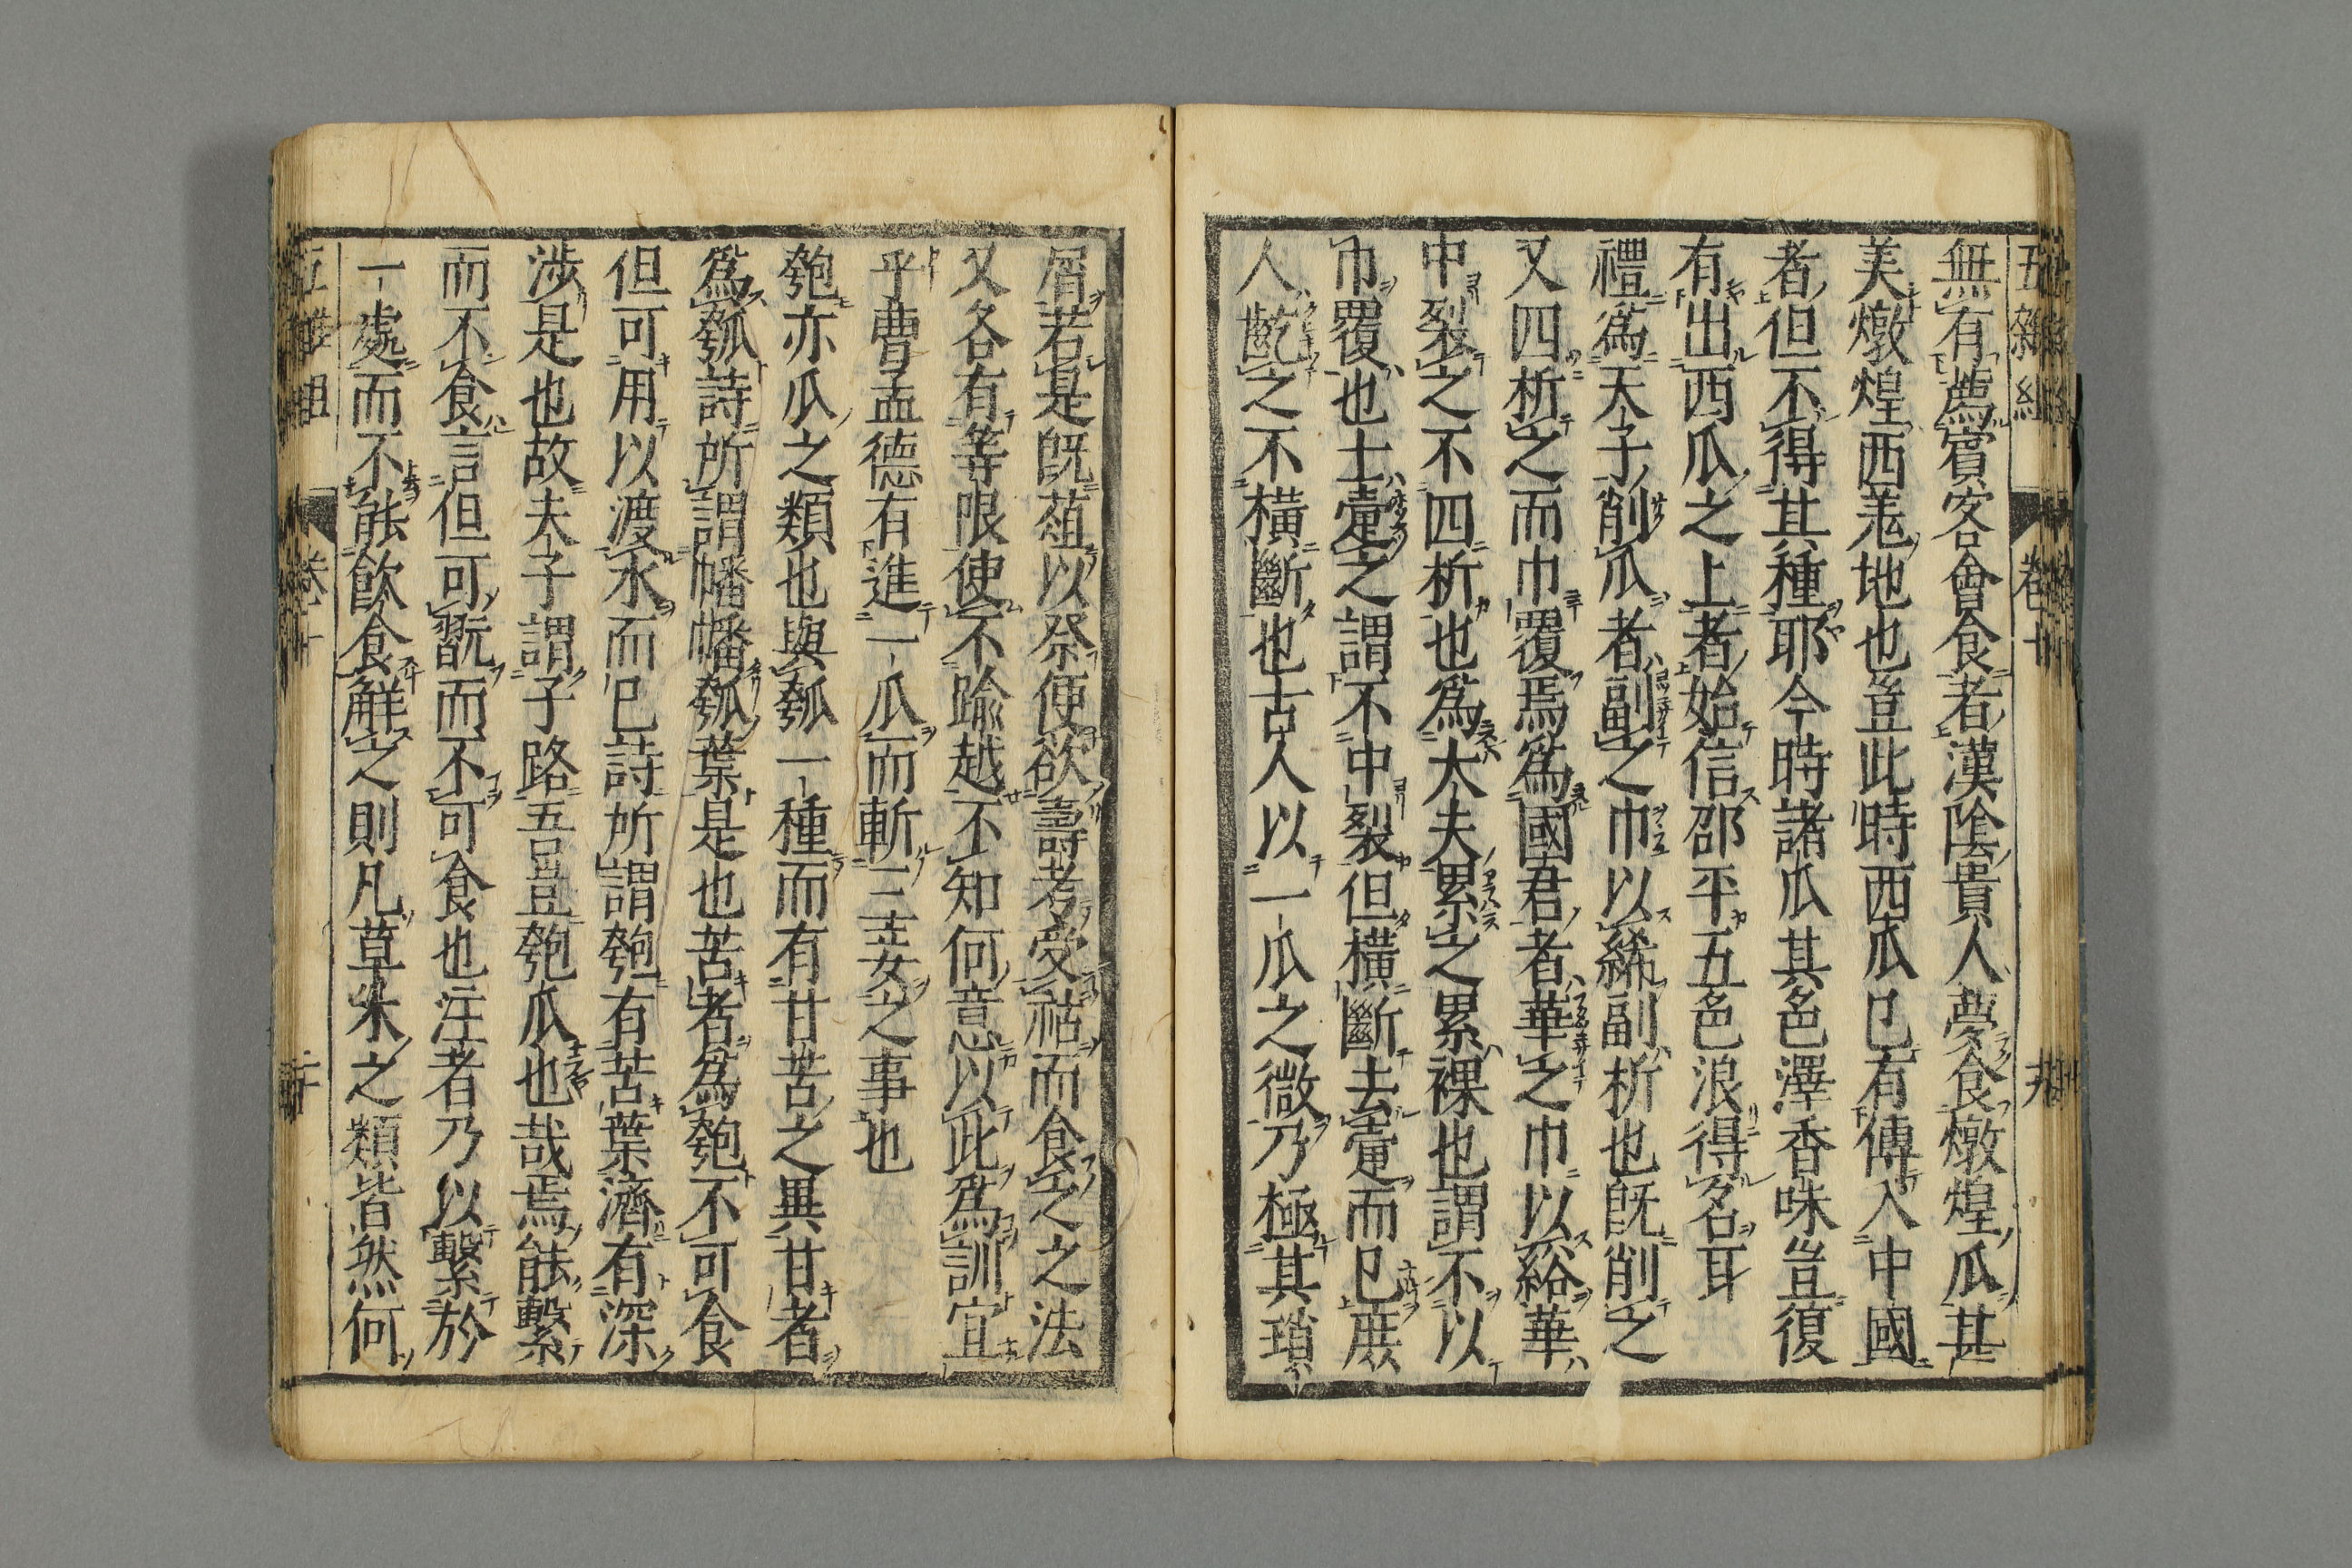 五雜組 卷十
無有薦賓客會食者漢陰貴人夢食燉煌瓜甚
美燉煌西羗地也豈此時西瓜已有傳入中國
者但不得其種耶今時諸瓜其色澤香味豈復
有出西瓜之上者始信邵平五色浪得名耳
禮爲天子削瓜者副之巾以絺副析也旣削之
又四析之而巾覆焉爲國君者華之巾以綌華
中裂之不四析也爲大夫累之累裸也謂不以
巾覆也士疐之謂不中裂但橫斷去疐而已庶
人齕之不橫斷也古人以一瓜之微乃極其瑣
屑若是旣菹以祭便欲壽考受祜而食之之法
又各有等限使不踰越不知何意以此爲訓宜
乎曹孟德有進一瓜而斬三妾之事也
匏亦瓜之類也與瓠一種而有甘苦之異甘者
爲瓠詩所謂幡幡瓠葉是也苦者爲匏不可食
但可用以渡水而已詩所謂匏有苦葉濟有深
涉是也故夫子謂子路吾豈匏瓜也哉焉能繫
而不食言但可翫而不可食也注者乃以繫於
一處而不能飮食觧之則凡草木之類皆然何
卷十